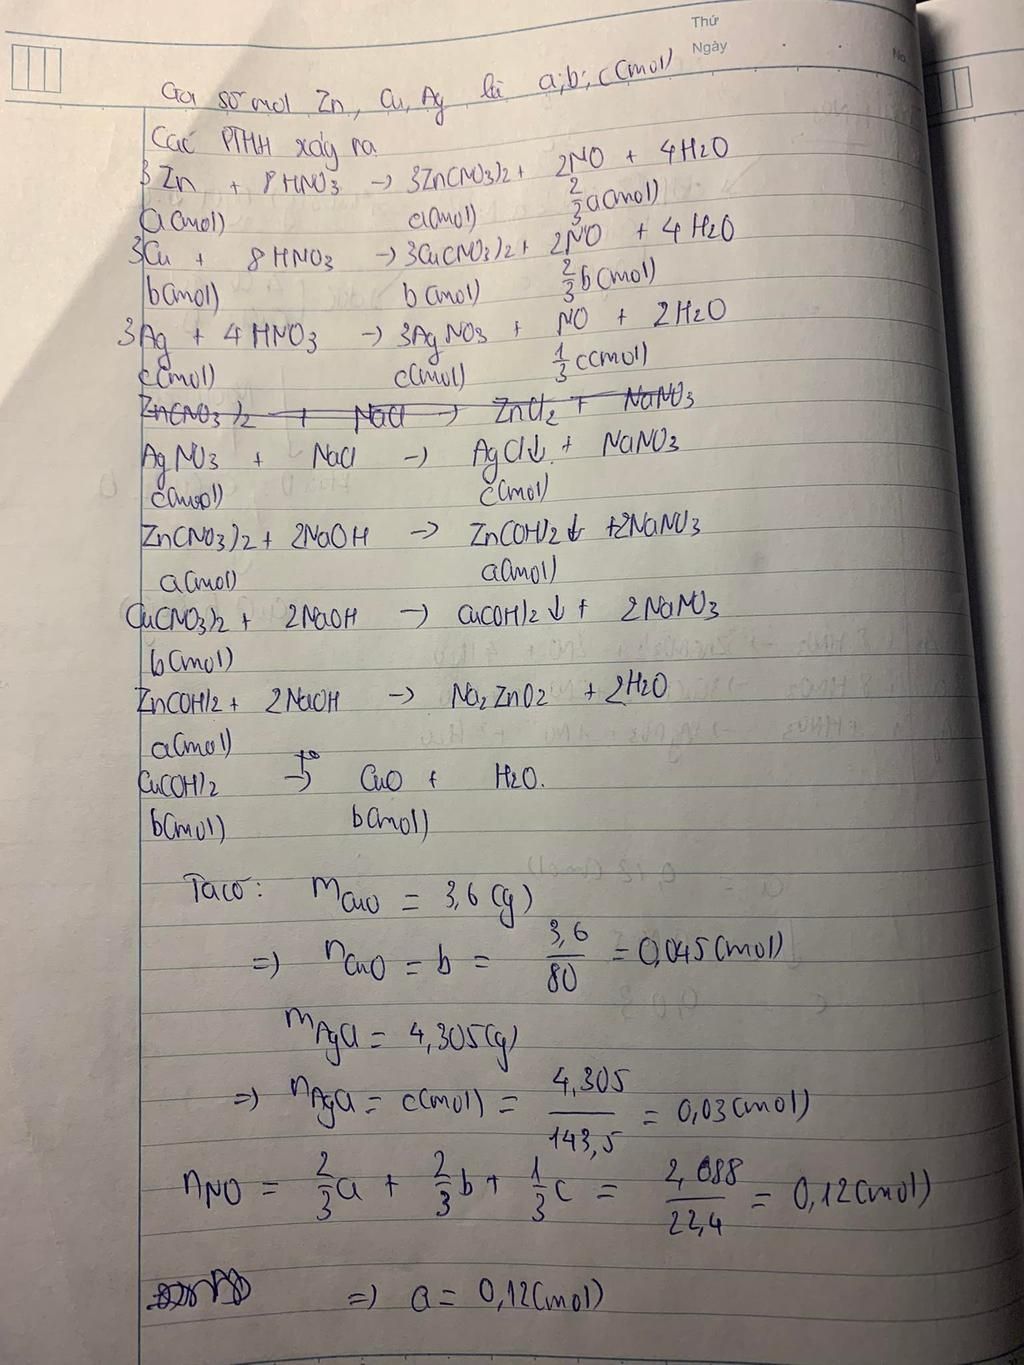 Thứ
Ngày
No.
Gọi số mol Zn, Cu, Ag là a; b; c (mol)
Các PTHH xảy ra
3Zn + 8HNO3 → 3Zn(NO3)2 + 2NO + 4H2O
a(mol) a(mol) 2/3 a(mol)
3Cu + 8HNO3 → 3Cu(NO3)2 + 2NO + 4H2O
b(mol) b(mol) 2/3 b(mol)
3Ag + 4HNO3 → 3AgNO3 + NO + 2H2O
c(mol) c(mol) 1/3 c(mol)
Zn(NO3)2 + NaCl → ZnCl2 + NaNO3
AgNO3 + NaCl → AgCl↓ + NaNO3
c(mol) c(mol)
Zn(NO3)2 + 2NaOH → Zn(OH)2↓ + 2NaNO3
a(mol) a(mol)
Cu(NO3)2 + 2NaOH → Cu(OH)2↓ + 2NaNO3
b(mol)
Zn(OH)2 + 2NaOH → Na2ZnO2 + 2H2O
a(mol)
Cu(OH)2 t° → CuO + H2O.
b(mol) b(mol)
Ta có: mCuO = 3,6 (g)
=> nCuO = b = 3,6/80 = 0,045 (mol)
mAgCl = 4,305 (g)
=> nAgCl = c(mol) = 4,305/143,5 = 0,03 (mol)
nNO = 2/3 a + 2/3 b + 1/3 c = 2,688/22,4 = 0,12 (mol)
=> a = 0,12 (mol)